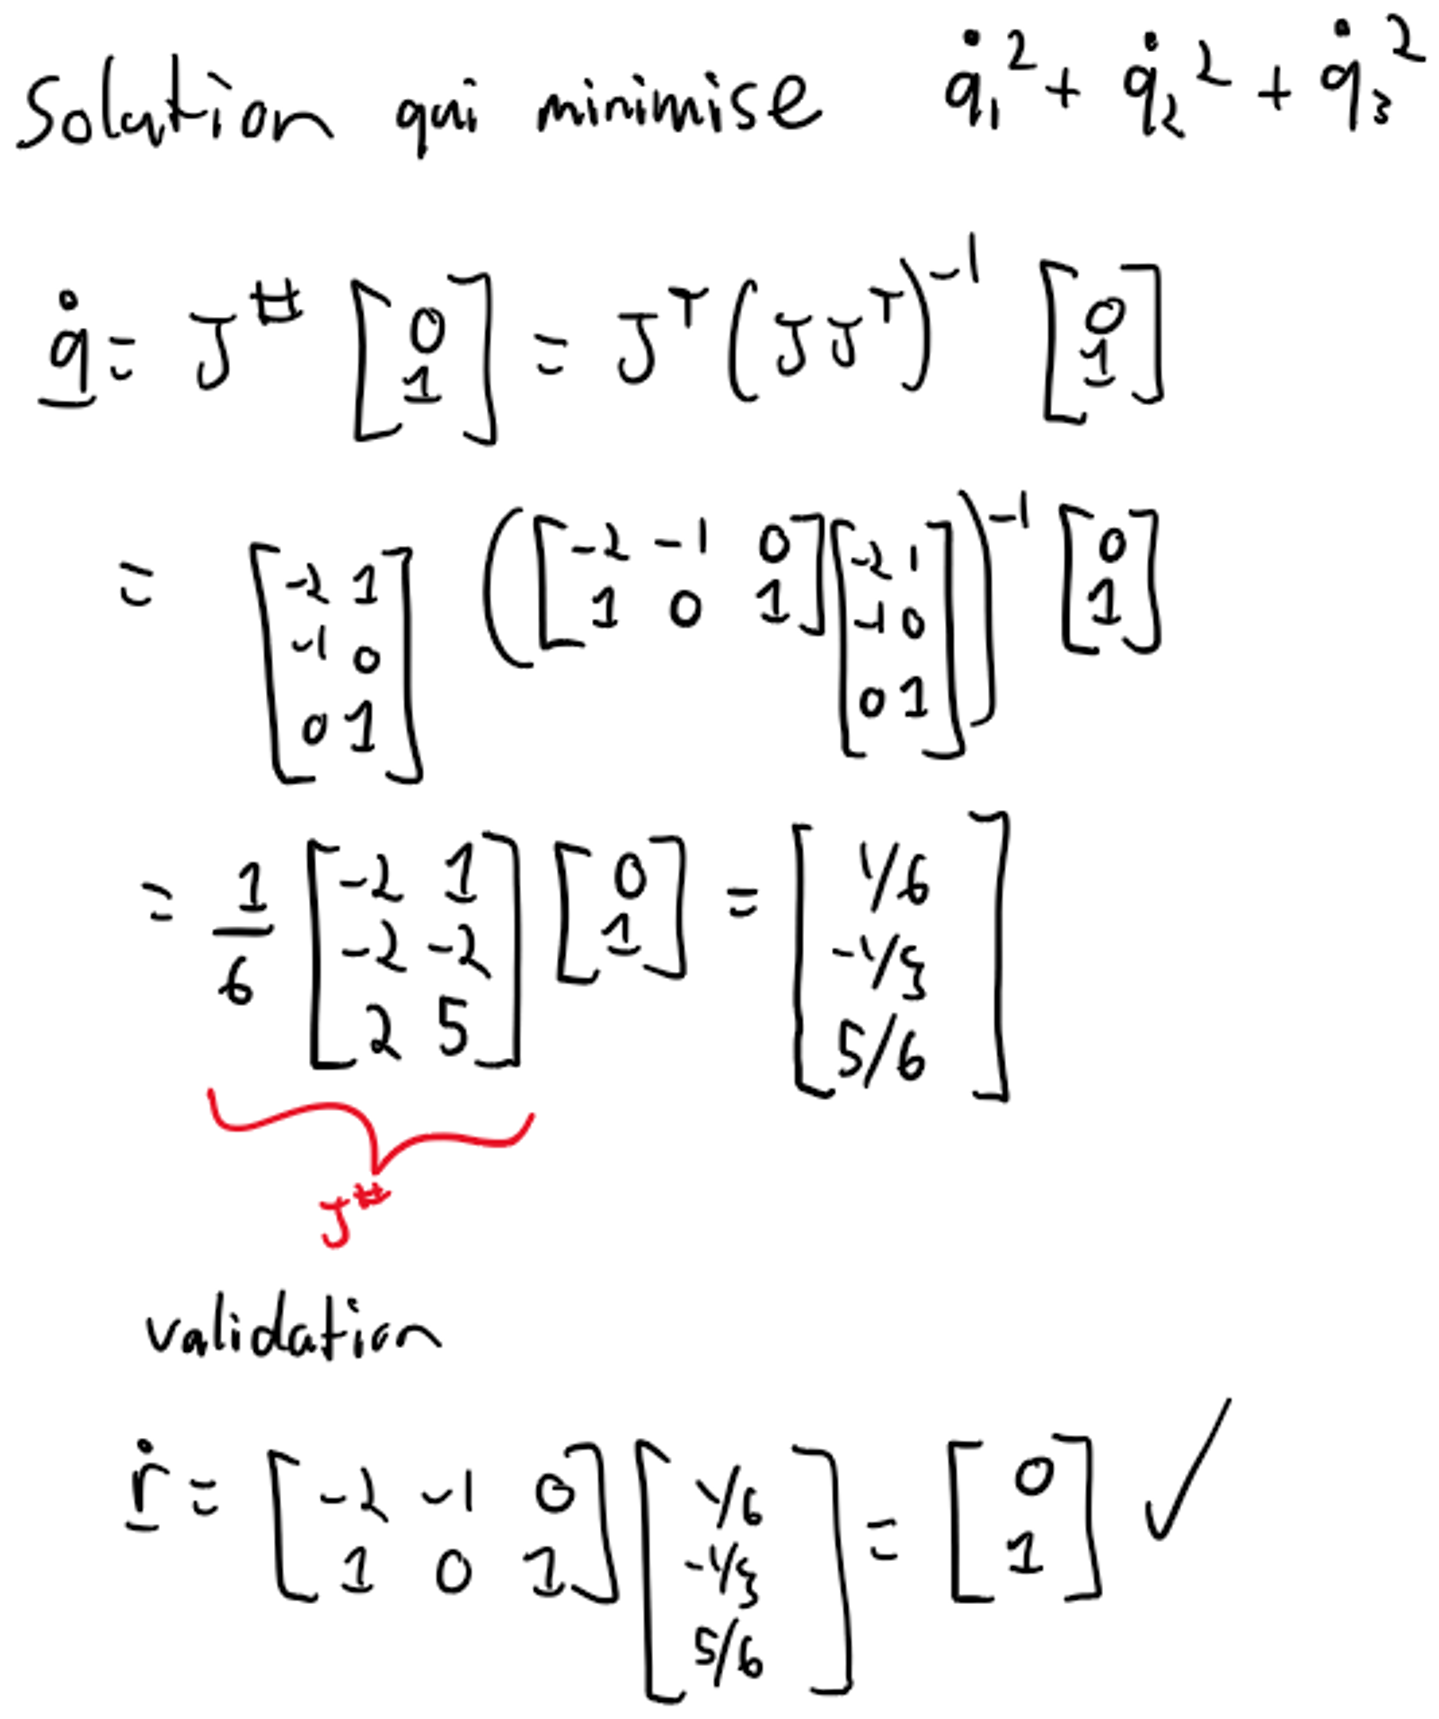 Solution qui minimise q̇₁² + q̇₂² + q̇₃²
q̇ = J^# [0; 1] = Jᵀ (J Jᵀ)⁻¹ [0; 1]
= [-2 1; -1 0; 0 1] ([-2 -1 0; 1 0 1] [-2 1; -1 0; 0 1])⁻¹ [0; 1]
= 1/6 [-2 1; -2 -2; 2 5] [0; 1] = [1/6; -1/3; 5/6]
J^#
validation
ṙ = [-2 -1 0; 1 0 1] [1/6; -1/3; 5/6] = [0; 1] ✓